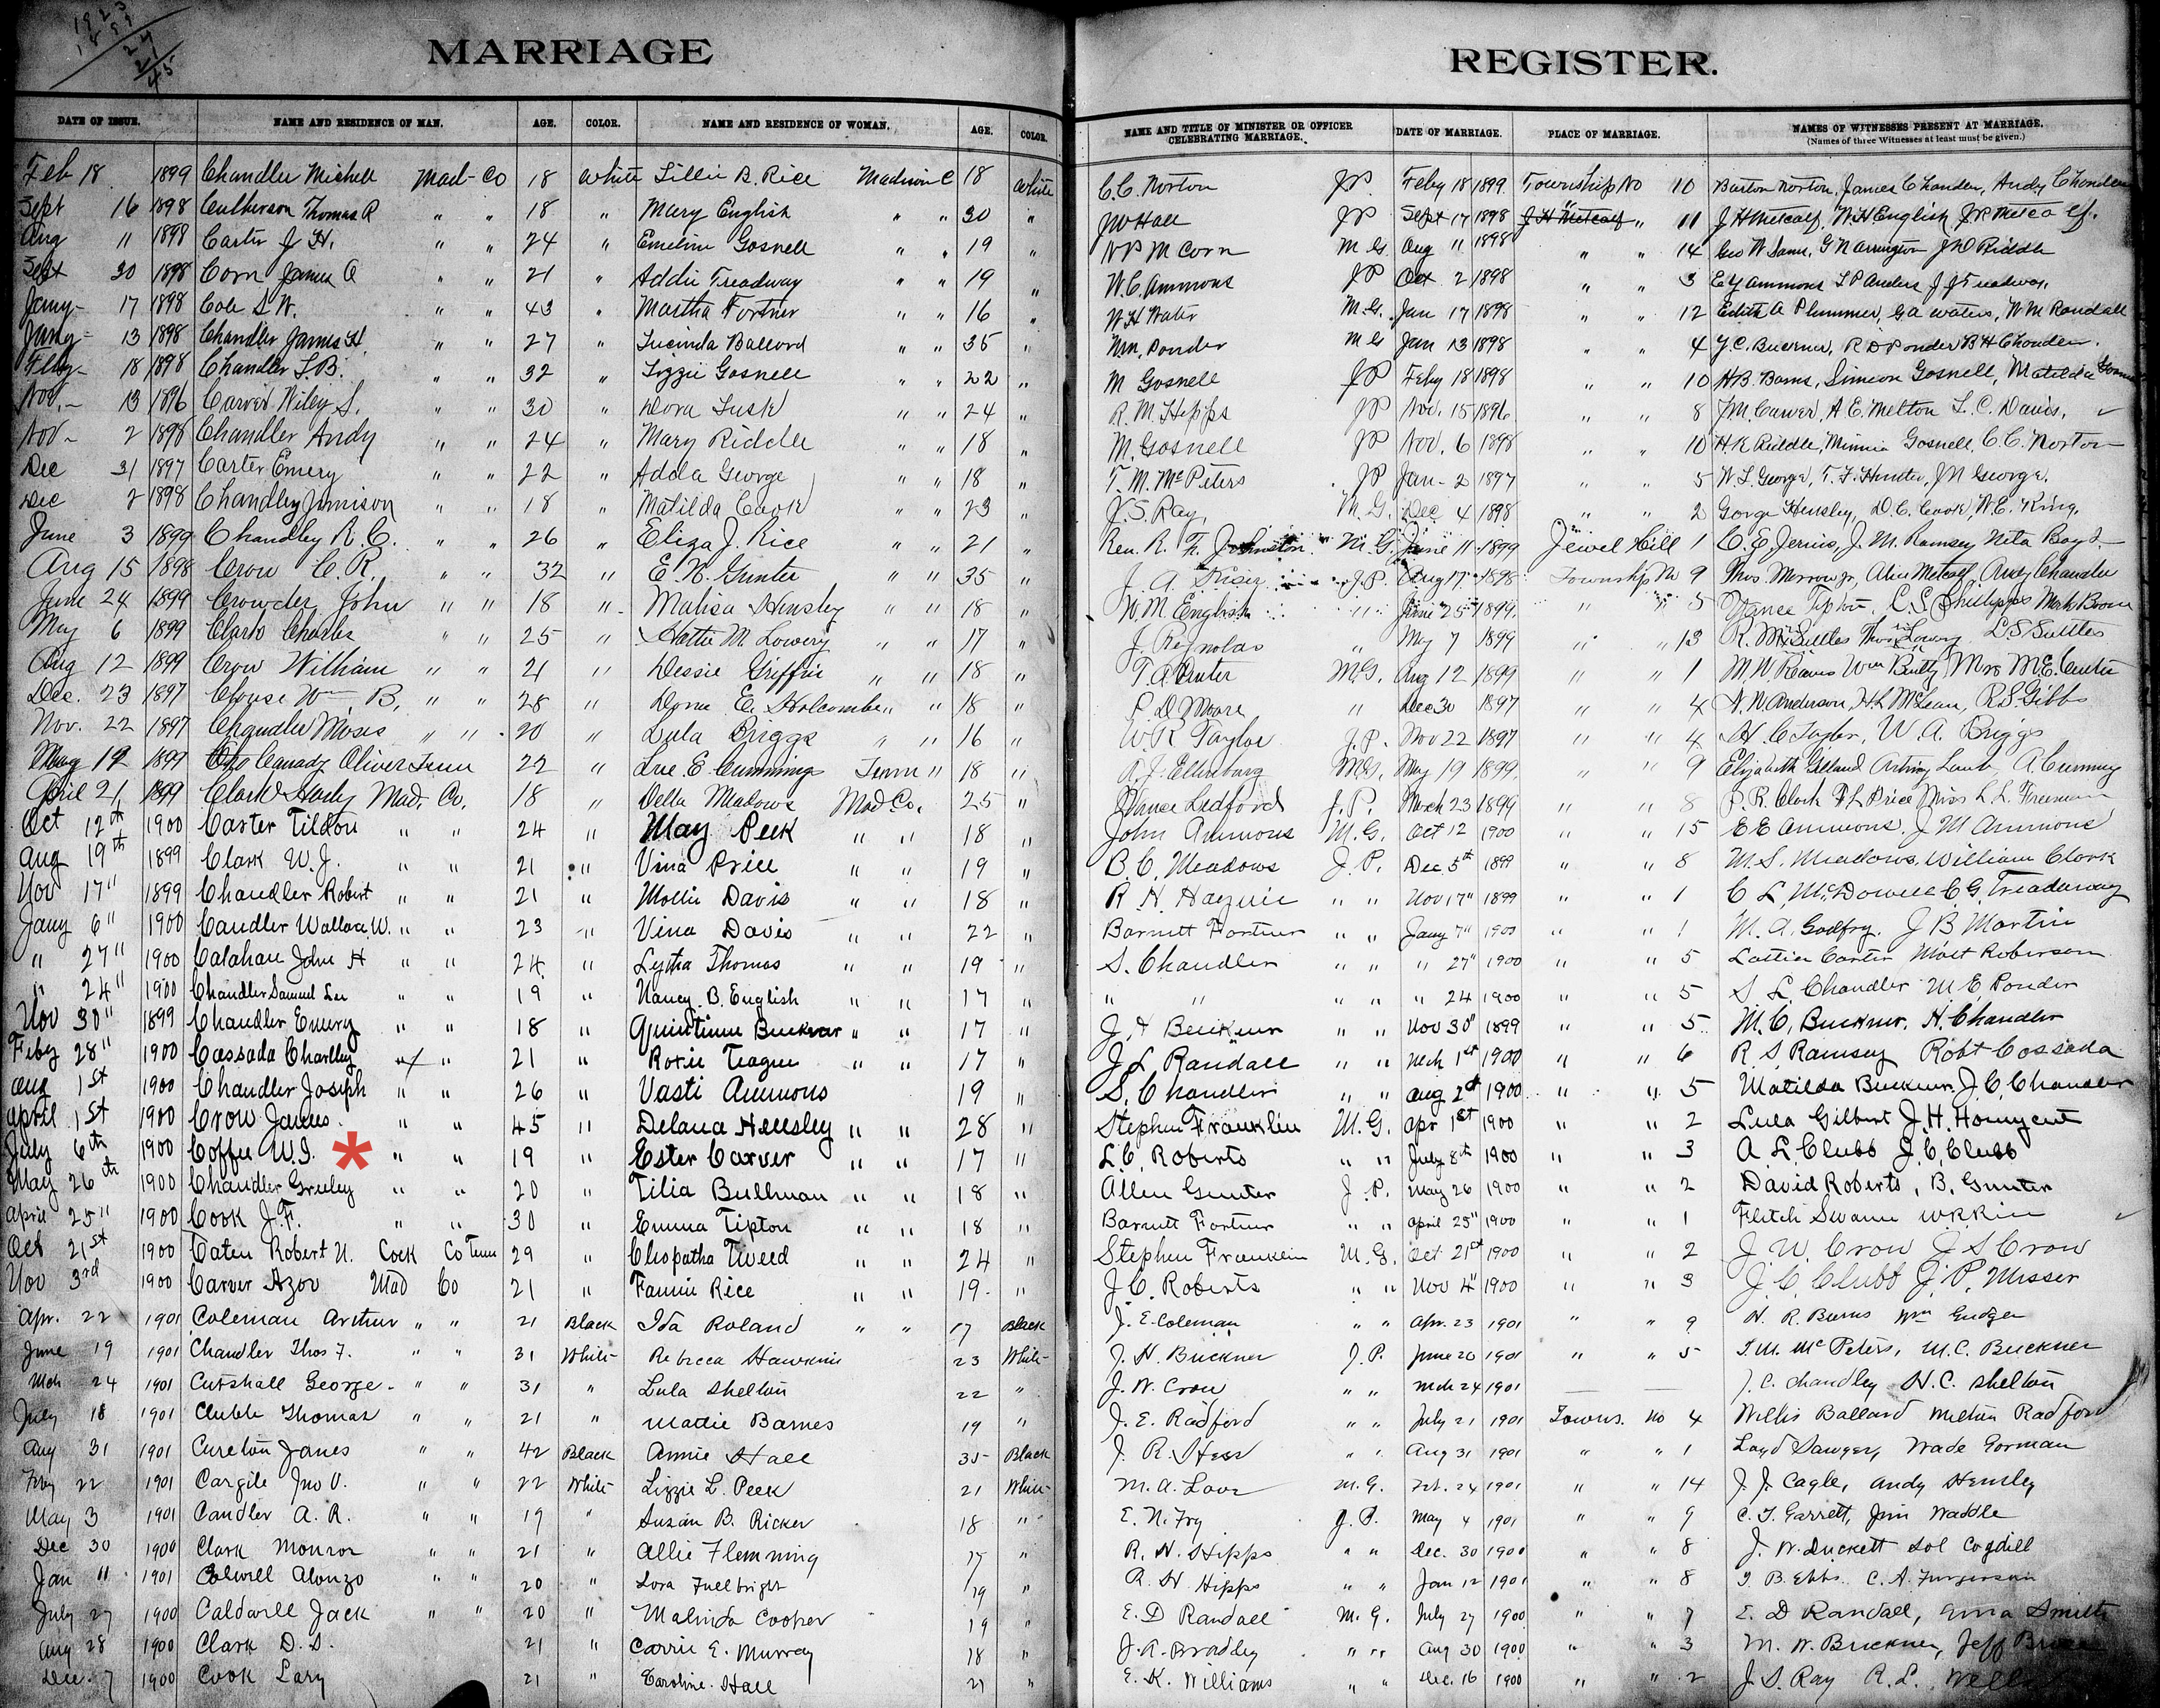 1923
1899
24
21
45
MARRIAGE REGISTER.
DATE OF ISSUE. NAME AND RESIDENCE OF MAN. AGE. COLOR. NAME AND RESIDENCE OF WOMAN. AGE. COLOR. NAME AND TITLE OF MINISTER OR OFFICER CELEBRATING MARRIAGE. DATE OF MARRIAGE. PLACE OF MARRIAGE. NAMES OF WITNESSES PRESENT AT MARRIAGE.
(Names of three Witnesses at least must be given.)
Feb 18 1899 Chandler Michell Mad-Co 18 White Lillie B. Rice Madison C 18 White C.C. Norton JP Feby 18 1899 Township No 10 Burton Norton, James Chandler, Andy Chandler
Sept 16 1898 Culberson Thomas R " " 18 " Mary English " " 30 " JW Hall JP Sept 17 1898 J H Metcalf " 11 J H Metcalf, W.H. English J.R. Metcalf.
Aug 11 1898 Carter J H. " " 24 " Emeline Gosnell " " 19 " N P M Corn M G. Aug 11 1898 " " 14 Geo W Sams, G N Arrington J W Riddle
Sept 30 1898 Corn James A " " 21 " Addie Treadway " " 19 " W.C. Ammons JP Oct 2 1898 " " 3 E Y Ammons L P Anders J J Treadway.
Jany- 17 1898 Cole S W. " " 43 " Martha Fortner " " 16 " W H Water M.G. Jan 17 1898 " " 12 Edith A Plummer, G A Waters, W M Randall
Jany- 13 1898 Chandler James H. " " 27 " Lucinda Ballard " " 35 " Wm. Ponder M G Jan 13 1898 " " 4 J.C. Buckner, R D Ponder B H Chandler.
Feby- 18 1898 Chandler L.B. " " 32 " Lizzie Gosnell " " 22 " M Gosnell JP Feby 18 1898 " " 10 H.B. Barns, Simeon Gosnell, Matilda
Nov.- 13 1896 Carver Wiley S. " " 30 " Dora Lusk " " 24 " R. M. Hipps JP Nov. 15 1896 " " 8 J M Carver, A.E. Melton L. C. Davis,
Nov- 2 1898 Chandler Andy " " 24 " Mary Riddle " " 18 " M. Gosnell JP Nov. 6 1898 " " 10 H.K Riddle, Minnie Gosnell, C.C. Norton
Dec 31 1897 Carter Emery " " 22 " Adda George " " 18 " T. M. McPeters JP Jan- 2 1897 " " 5 W.L. George, T.F. Hunter, J N George.
Dec 2 1898 Chandley Jimison " " 18 " Matilda Cook " " 23 " J.S. Ray, M.G. Dec 4 1898 " " 2 Gorge Hensley, D.C. Cook, W.C. King.
June 3 1899 Chandley R.C. " " 26 " Eliza J. Rice " " 21 " Rev. R. Th. Johnston M.G. June 11 1899 Jewel Hill 1 C. E. Jervis, J. M. Ramsey Neta
Aug 15 1898 Crow C.R. " " 32 " E. N. Gunter " " 35 " J. A. J.P. Aug 17 1898 Township No 9 Thos. Morrow Jr, Alice Metcalf, Andy Chandler
June 24 1899 Crowder John " " 18 " Malisa Hensley " " 18 " W.M. English " " June 25 1899. " " 5 Vance Tipton, L.S. Phillips Mark Boone
May 6 1899 Clark Charles " " 25 " Hattie M. Lowery " " 17 " J. Reynolds " May 7 1899 " " 13 R. M. Suttles Thos Lowery L S Suttles
Aug 12 1899 Crow William " " 21 " Dessie Griffin " " 18 " T. A. M.G. Aug 12 1899 " " 1 M. W Reaves Wm Mrs M.E.
Dec. 23 1897 Clouse Wm B. " " 28 " Dorra E. Holcombe " " 18 " P. D. Moore " Dec 30 1897 " " 4 N. N. Anderson, H. L. McLean, R.S. Gibbs
Nov. 22 1897 Chandler Moses " " 20 " Lula Briggs " " 16 " W.R Taylor J.P. Nov 22 1897 " " 4 H. C Taylor, W. A. Briggs
May 19 1899 Canady Oliver Tenn 22 " Lue E. Cummings Tenn " 18 " A. J. Ellenburg M.G. May 19 1899. " " 9 Elizabeth Gilland
April 21, 1899 Clark Mad. Co. 18 " Della Meadows Mad Co. 25 " Vance Ledford J.P. March 23 1899 " " 8 P. R. Clark F L Price Miss L L. Freeman
Oct 12th 1900 Carter Tildon " " 24 " May Peek " " 18 " John Ammons M.G. Oct 12 1900 " " 15 E E Ammons. J M Ammons
Aug 19th 1899 Clark W.J. " " 21 " Vina Price " " 19 " B. C. Meadows J. P. Dec 5th 1899 " " 8 M. S. Meadows, William Clark
Nov 17" 1899 Chandler Robert " " 21 " Mollie Davis " " 18 " R. N. " " Nov 17" 1899 " " 1 C L McDowell C G. Treadaway
Jany 6" 1900 Candler Wallace W. " " 23 " Vina Davis " " 22 " Barnett Fortner " " Jany 7" 1900 " " 1 M. A. Godfry. J B Martin
" 27" 1900 Calahan John H " " 24 " Lytha Thomas " " 19 " S. Chandler " " " 27" 1900 " " 5 Lattia Carter Mait Roberson
" 24" 1900 Chandler Samuel Lee " " 19 " Nancy B. English " " 17 " " " " " " 24 1900 " " 5 S L Chandler M E Ponder
Nov 30" 1899 Chandler Emery " " 18 " Quintinna Buckner " " 17 " J. H Buckner " " Nov 30" 1899 " " 5 M. C, Buckner. H. Chandler
Feby 28" 1900 Cassada Charlley " " 21 " Roxie Teague " " 17 " J L Randall " " Mch 1st 1900 " " 6 R. S Ramsey Robt Cossada
Aug 1st 1900 Chandler Joseph " " 26 " Vasti Ammons 19 " S. Chandler " " Aug 2d 1900 " " 5 Matilda Buckner, J. C. Chandler
April 1st 1900 Crow James. " " 45 " Delana Hensley " " 28 " Stephen Franklin M.G. Apr 1st 1900 " " 2 Lula Gilbert J. H. Honycut
July 6th 1900 Coffee W.I. * " " 19 " Ester Carver " " 17 " L.C. Roberts " " July 8th 1900 " " 3 A. L. Clubb J. C. Clubb
May 26th 1900 Chandler Greeley " " 20 " Tilia Bullman " " 18 " Allen Gunter J. P. May 26 1900 " " 2 David Roberts, B. Gunter
April 25" 1900 Cook J.F. " " 30 " Emma Tipton " " 18 " Barnett Fortner " " April 25" 1900 " " 1 Fletch Swann W.R. Rice
Oct 21st 1900 Caten Robert N. Cock Co Tenn 29 " Cleopatha Tweed " " 24 " Stephen Franklin M.G. Oct 21st 1900 " " 2 J. W. Crow J S Crow
Nov 3rd 1900 Carver Azor Mad Co 21 " Fannie Rice " " 19 " J. C. Roberts " " Nov 4" 1900 " " 3 J. C. Clubb J. P. Messer
Apr. 22 1901 Coleman Arthur " " 21 Black Ida Roland " " 17 Black J. E. Coleman " " Apr. 23 1901 " " 9 N. R. Burns Wm Gudger
June 19 1901 Chandler Thos F. " " 31 White Rebecca Hawkins 23 White J. H. Buckner J.P. June 20 1901 " " 5 T. M. McPeters, M.C. Buckner
Mch 24 1901 Cutshall George " " 31 " Lula Shelton 22 " J. W. Crow " " Mch 24 1901 J. C. Chandley N. C. Shelton
July 18 1901 Clubb Thomas " " 21 " Mattie Barnes 19 " J. E. Radford " " July 21 1901 Towns. No 4 Willis Ballard Melton Radford
Aug 31 1901 Cureton Janes " " 42 Black Annie Hall 35 Black J. R. Hess " " Aug 31 1901 " " 1 Loyd Sawyer, Wade Gorman
Feby 22 1901 Cargile Jno V. " " 22 White Lizzie L. Peek 21 White M. A. Love M. G. Feb. 24 1901 " " 14 J. J. Cagle, Andy Hensley
May 3 1901 Candler A. R. " " 19 " Suzan B. Ricker 18 " E. N. Fry J. P. May 4 1901 " " 9 C. T. Garrett, Jim Waddle
Dec 30 1900 Clark Monroe " " 21 " Allie Flemming 17 " R. N. Hipps " " Dec. 30 1900 " " 8 J. W. Duckett Sol Cogdill
Jan 11 1901 Colwell Alonzo " " 20 " Lora Fullbright 19 " R. N. Hipps " " Jan 12 1901 " " 8 T. B. Ebbs. C. A. Furgerson
July 27 1900 Caldwell Jack " " 20 " Malinda Cooper 19 " E. D Randall M. G. July 27 1900 " " 7 E. D Randall, Smith
Aug 28 1900 Clark D. S. 21 " Carrie E. Murray 18 " J. A. Bradley " " Aug 30 1900 " " 3 M. W. Bruckner, Jeff
Dec. 7 1900 Cook Lary 21 " Caroline Hall 21 " E. K. Williams " " Dec. 16 1900 " " 2 J. S. Ray R. L.